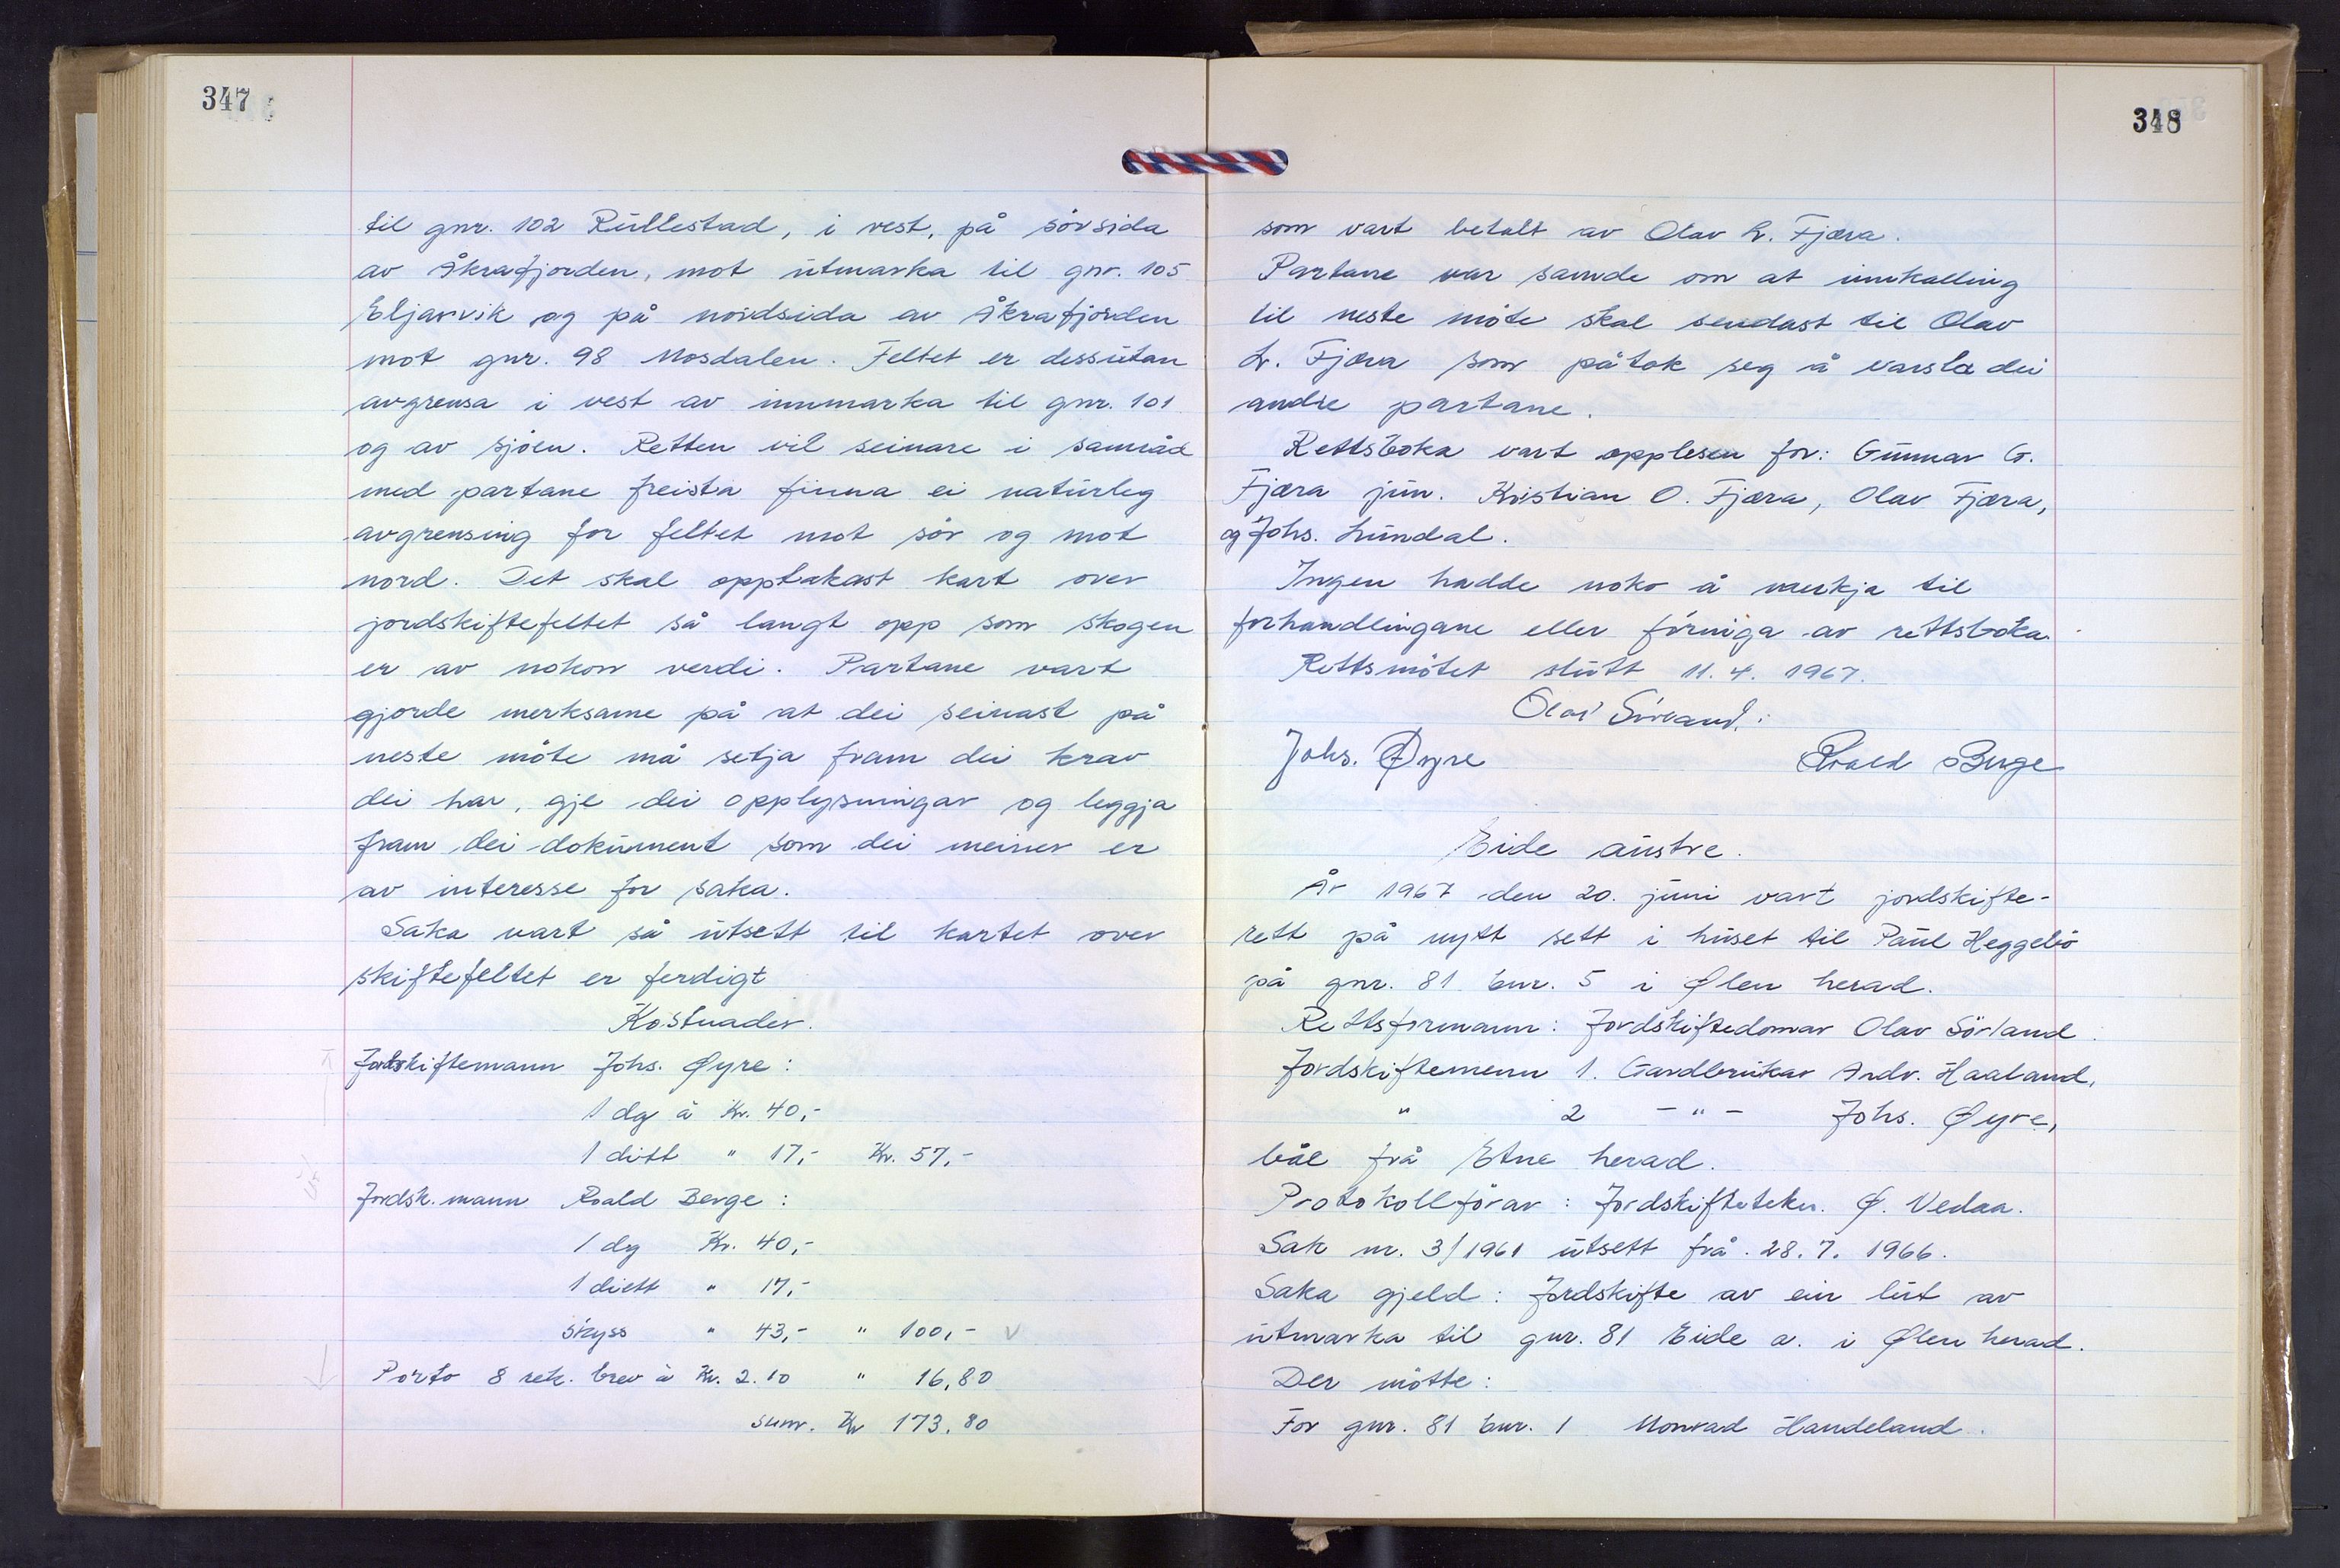 347
til gnr. 102 Rullestad, i vest, på sörsida
av Åkrafjorden, mot utmarka til gnr. 105
Eljarvik og på nordsida av Åkrafjorden
mot gnr. 98 Mosdalen. Feltet er dessutan
avgrensa i vest av innmarka til gnr. 101
og av sjöen. Retten vil seinare i samråd
med partane freista finna ei naturleg
avgrensing for feltet mot sör og mot
nord. Det skal opptakast kart over
jordskiftefeltet så langt opp som skogen
er av nokon verdi. Partane vart
gjorde merksame på at dei seinast på
neste möte må setja fram dei krav
dei har, gje dei opplysningar og leggja
fram dei dokument som dei meiner er
av interesse for saka.
Saka vart så utsett til kartet over
skiftefeltet er ferdigt
Kostnader.
Jordskiftemann Johs. Øyre:
1 dg à Kr. 40,-
1 diett " 17,- Kr. 57,-
Jordsk.mann Roald Berge:
1 dg Kr. 40,-
1 diett " 17,-
Skyss " 43,- " 100,- V
Porto 8 rek. brev à Kr. 2.10 " 16,80
sum. Kr 173.80
348
som vart betalt av Olav L. Fjæra.
Partane var samde om at innkalling
til neste möte skal sendast til Olav
L. Fjæra som påtok seg å varsla dei
andre partane.
Rettsboka vart opplesen for: Gunnar G.
Fjæra jun. Kristian O. Fjæra, Olav Fjæra,
og Johs. Lundal.
Ingen hadde noko å merkja til
forhandlingane eller föringa av rettsboka.
Rettsmötet slutt 11.4. 1967.
Olav Sörland.
Johs. Øyre Roald Berge
Eide austre.
År 1967 den 20. juni vart jordskifte-
rett på nytt sett i huset til Paul Heggebö
på gnr. 81 bnr. 5 i Ølen herad.
Rettsformann: Jordskiftedomar Olav Sörland.
Jordskiftemenn 1. Gardbrukar Andr. Haaland,
" 2 - " - Johs. Øyre,
båe frå Etne herad.
Protokollförar: Jordskifteteku. Ø. Vedaa.
Sak nr. 3/1961 utsett frå 28.7. 1966.
Saka gjeld: Jordskifte av ein lut av
utmarka til gnr. 81 Eide a. i Ølen herad.
Der mötte:
For gnr. 81 bnr. 1 Monrad Handeland.